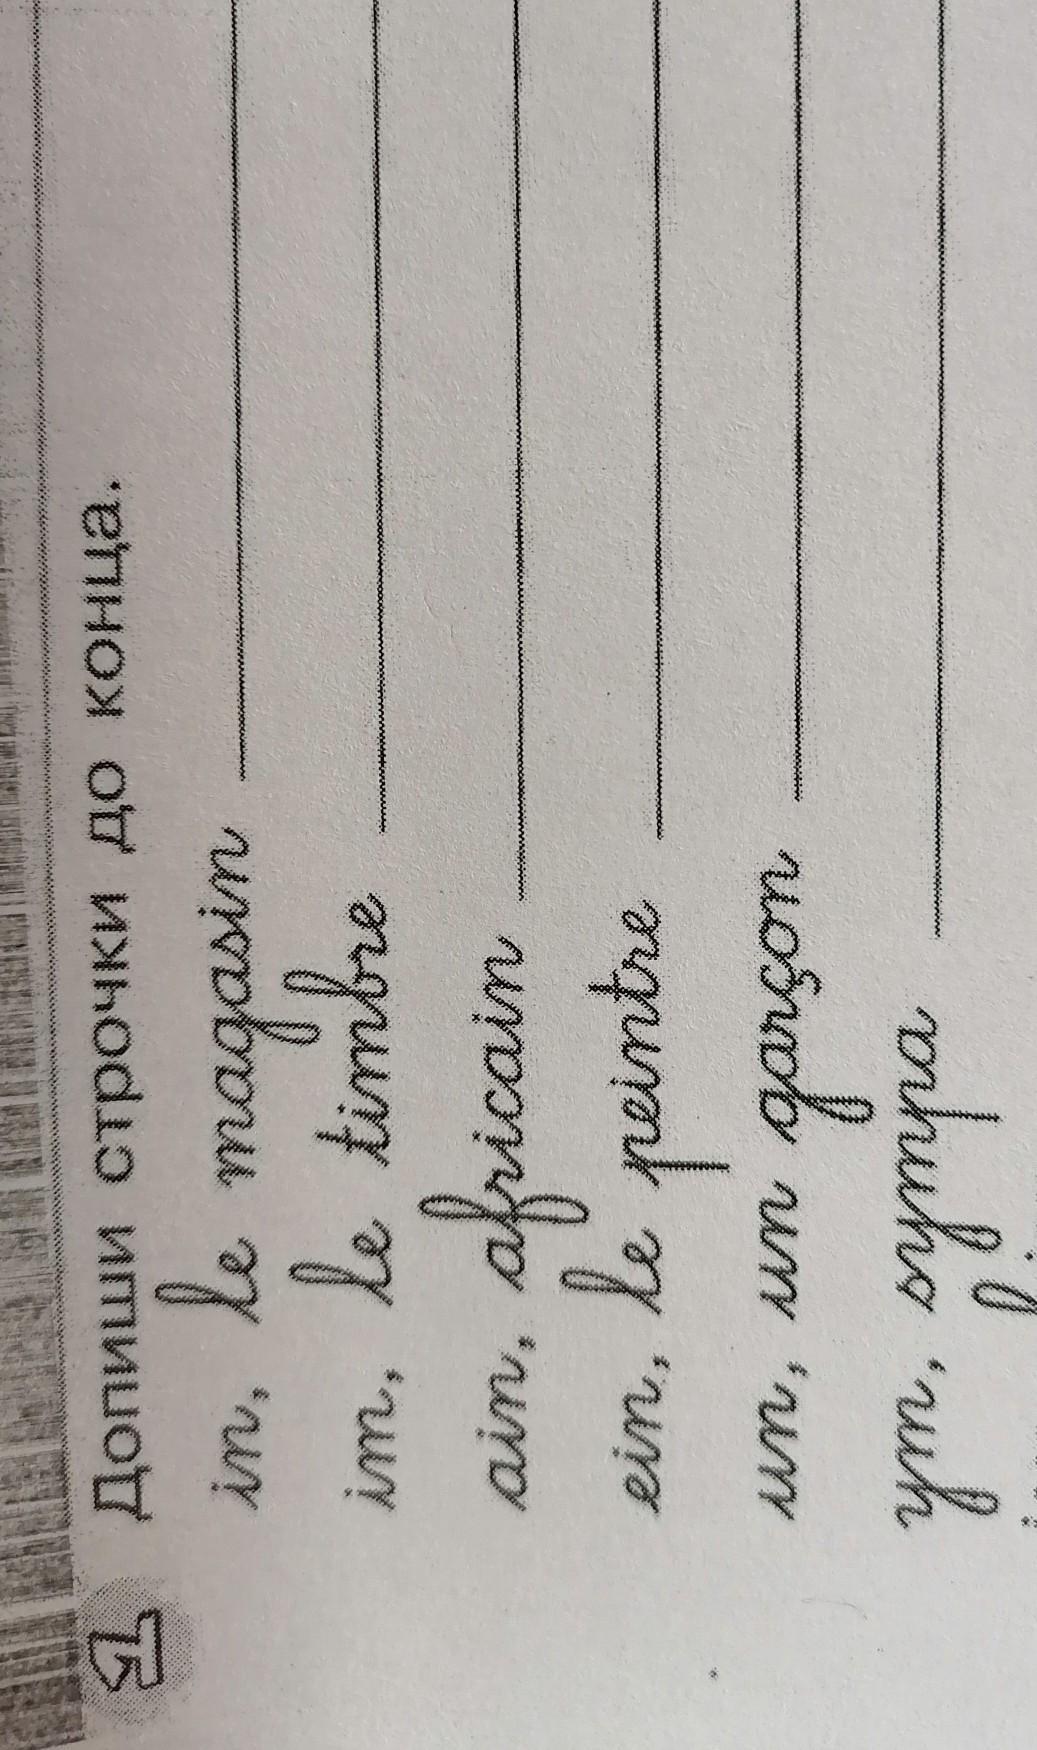 1 Допиши строчки до конца.
in, le magasin
im, le timbre
ain, africain
ein, le peintre
un, un garçon
ym, sympa